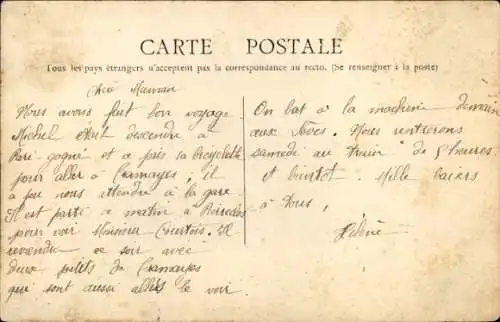 CARTE POSTALE
Tous les pays étrangers n'acceptent pas la correspondance au recto. (Se renseigner à la poste)
Chère Maman
Nous avons fait bon voyage
Michel était descendre à
gagné et a pris sa bicyclette
pour aller à Cramayes, il
a pu nous attendre à la gare
Il est parti ce matin à
pour voir Monsieur Courtois. Il
reviendra ce soir avec
deux petits de Cramayes
qui sont aussi allés le voir.
On bat à la machine demain
aux Fèves. Nous rentrerons
samedi au train de 5 heures.
et bientôt. Mille baisers
à tous,
Hélène